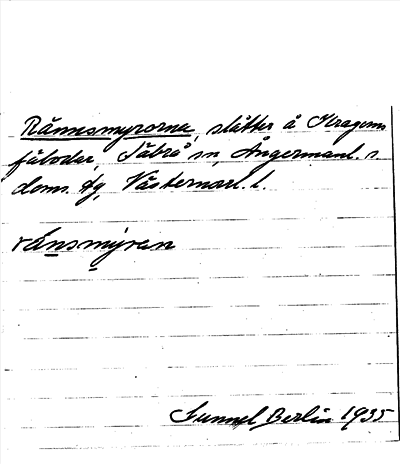 Rännsmyrorna, slåtter å Kragoms
fäbodar, Säbrå sn, Ångermanl. s
doms. fg, Västernorrl. l.
rǽnsmýran
Gunnel Berlin 1935